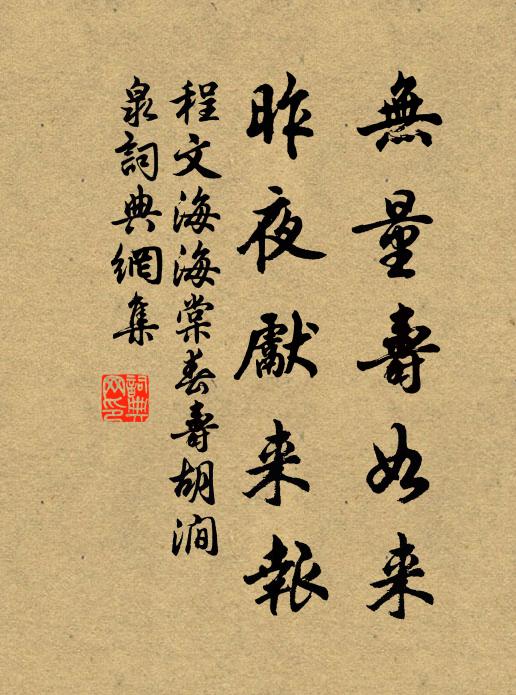 無量壽如来
昨夜獻来報
程文海海棠春壽胡澗
泉詞典網集
詞典網印